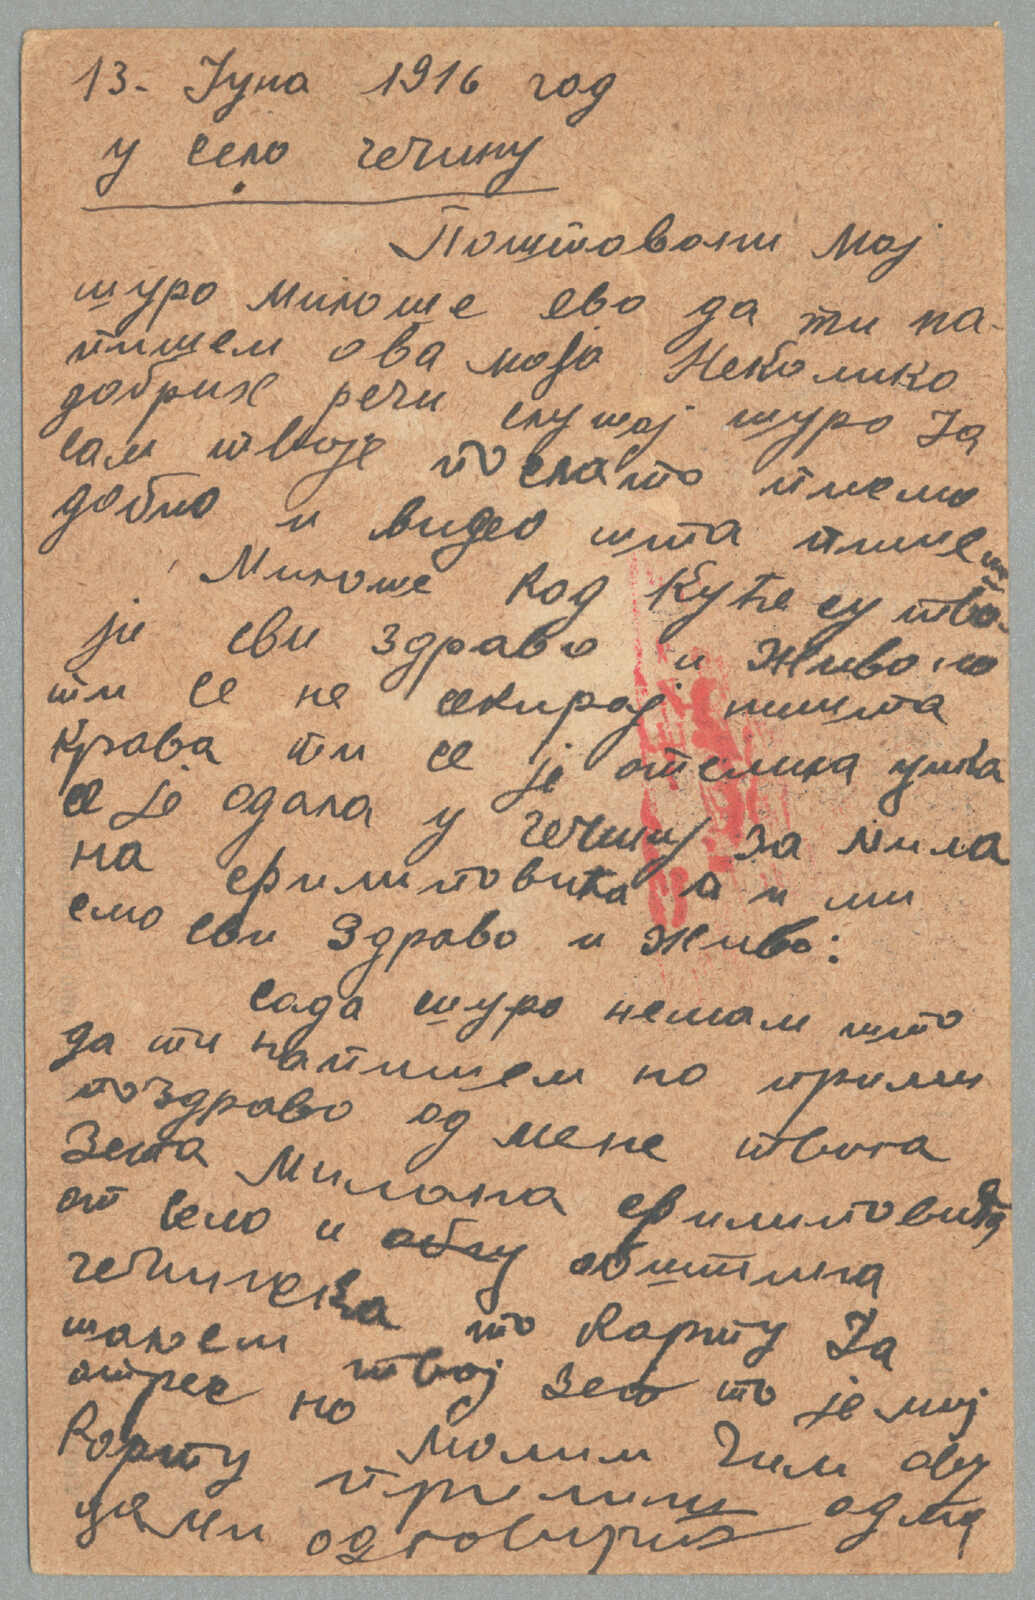 13. Јуна 1916 год
у село чечину
Поштовани мој
шуро милоше ево да ти на-
пишем ова моја Неколико
добрих речи слушај шуро Ја
сам твоје послато писмо
добио и видео шта пишеш
Милоше код куће су тво-
ји сви здраво и живо но
ти се не секирај ништа
Крава ти се је отелила
се је одала у чечину за Мила
на филиповића а и ми
смо сви здраво и живо:
сада шуро немам што
да ти напишем но прими
поздраво од мене твога
Зета Милана филиповића
от село и обшtина
чечинска то карту Ја
шалем твој Зет то је мој
но молим чим ову
карту примиш одма
да ми одговориш